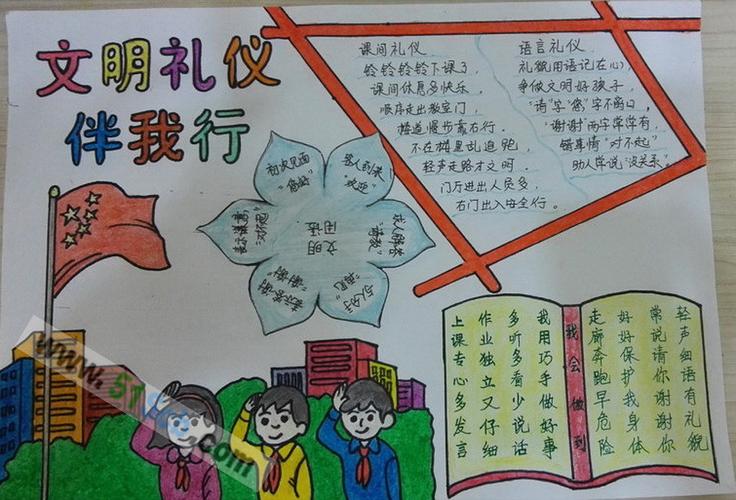 文明礼仪
伴我行
课间礼仪
铃铃铃铃下课了，
课间休息多快乐，
顺序走出教室门，
楼道慢步靠右行。
不在楼里乱追跑，
轻声走路才文明。
门厅进出人员多，
右门出入安全行。
语言礼仪
礼貌用语记在心，
争做文明好孩子，
“请”字“您”字不离口，
“谢谢”两字常常有，
错事情“对不起”
助人常说“没关系。”
初次见面
“您好”
客人到来
“欢迎”
求人解答
“请教”
与人分手
“再见”
表示答谢
“谢谢”
表示歉意
“对不起”
文明
用语
轻声细语有礼貌
常说请你谢谢你
好好保护我身体
走廊奔跑早危险
我会做到
我用巧手做好事
多听多看少说话
作业独立又仔细
上课专心多发言
www.51
.com